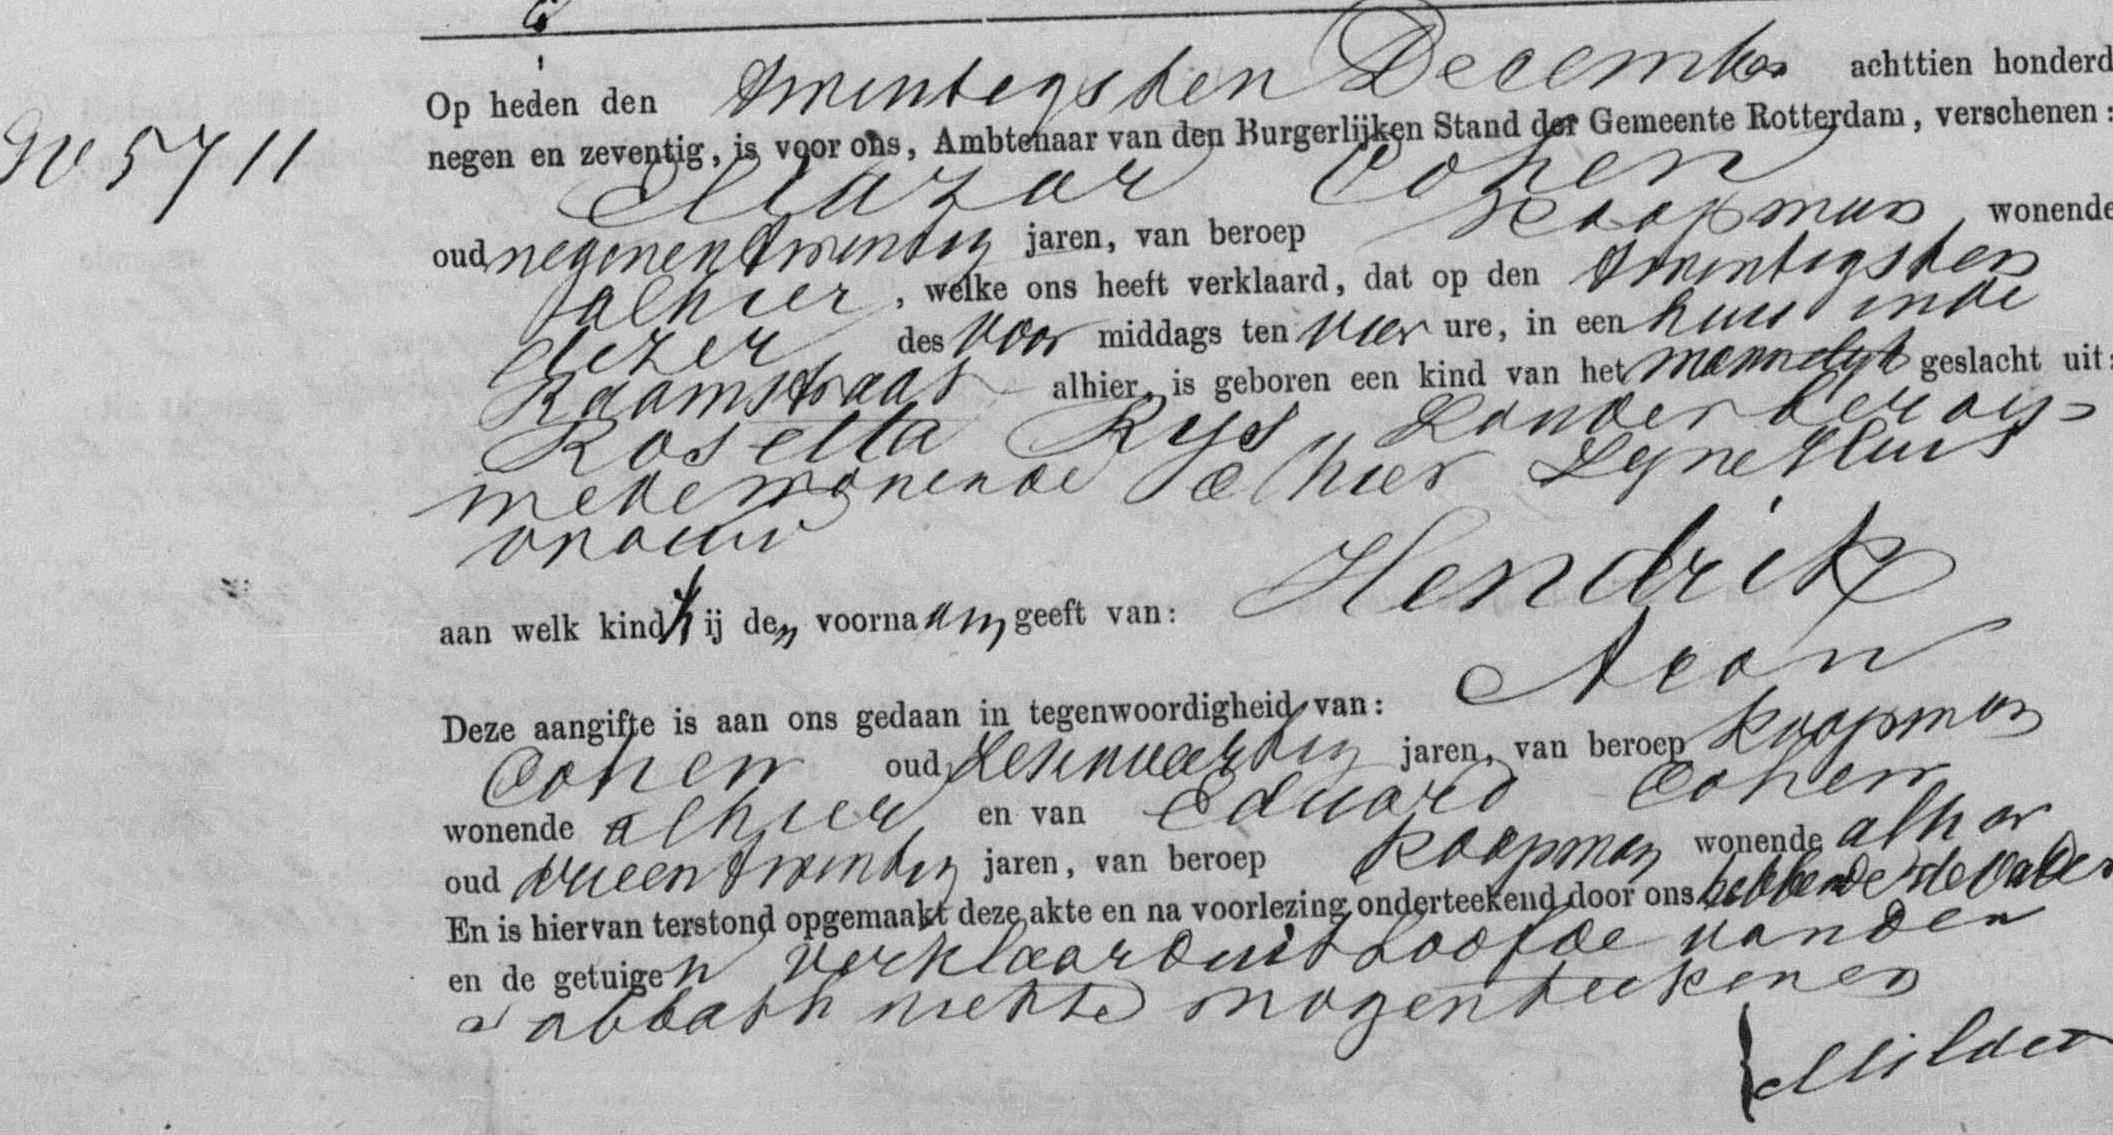 No 5711
Op heden den twintigsten December achttien honderd
negen en zeventig, is voor ons, Ambtenaar van den Burgerlijken Stand der Gemeente Rotterdam, verschenen:
Eliazar Cohen
oud negenentwintig jaren, van beroep Koopman, wonende
alhier, welke ons heeft verklaard, dat op den twintigsten
dezer des voor middags ten vier ure, in een huis in de
Raamstraat alhier, is geboren een kind van het mannelijk geslacht uit:
Rosetta Rijs, zonder beroep
mede wonende alhier Zijne Huis
vrouw
aan welk kind hij den voornaam geeft van: Hendrik
Deze aangifte is aan ons gedaan in tegenwoordigheid van: Aron
Cohen oud zesenveertig jaren, van beroep koopman
wonende alhier en van Eduard Cohen
oud drieentwintig jaren, van beroep koopman wonende alhier
En is hiervan terstond opgemaakt deze akte en na voorlezing onderteekend door ons hebbende de Vader
en de getuigen verklaard uit hoofde van den
Sabbath niet te mogen teekenen